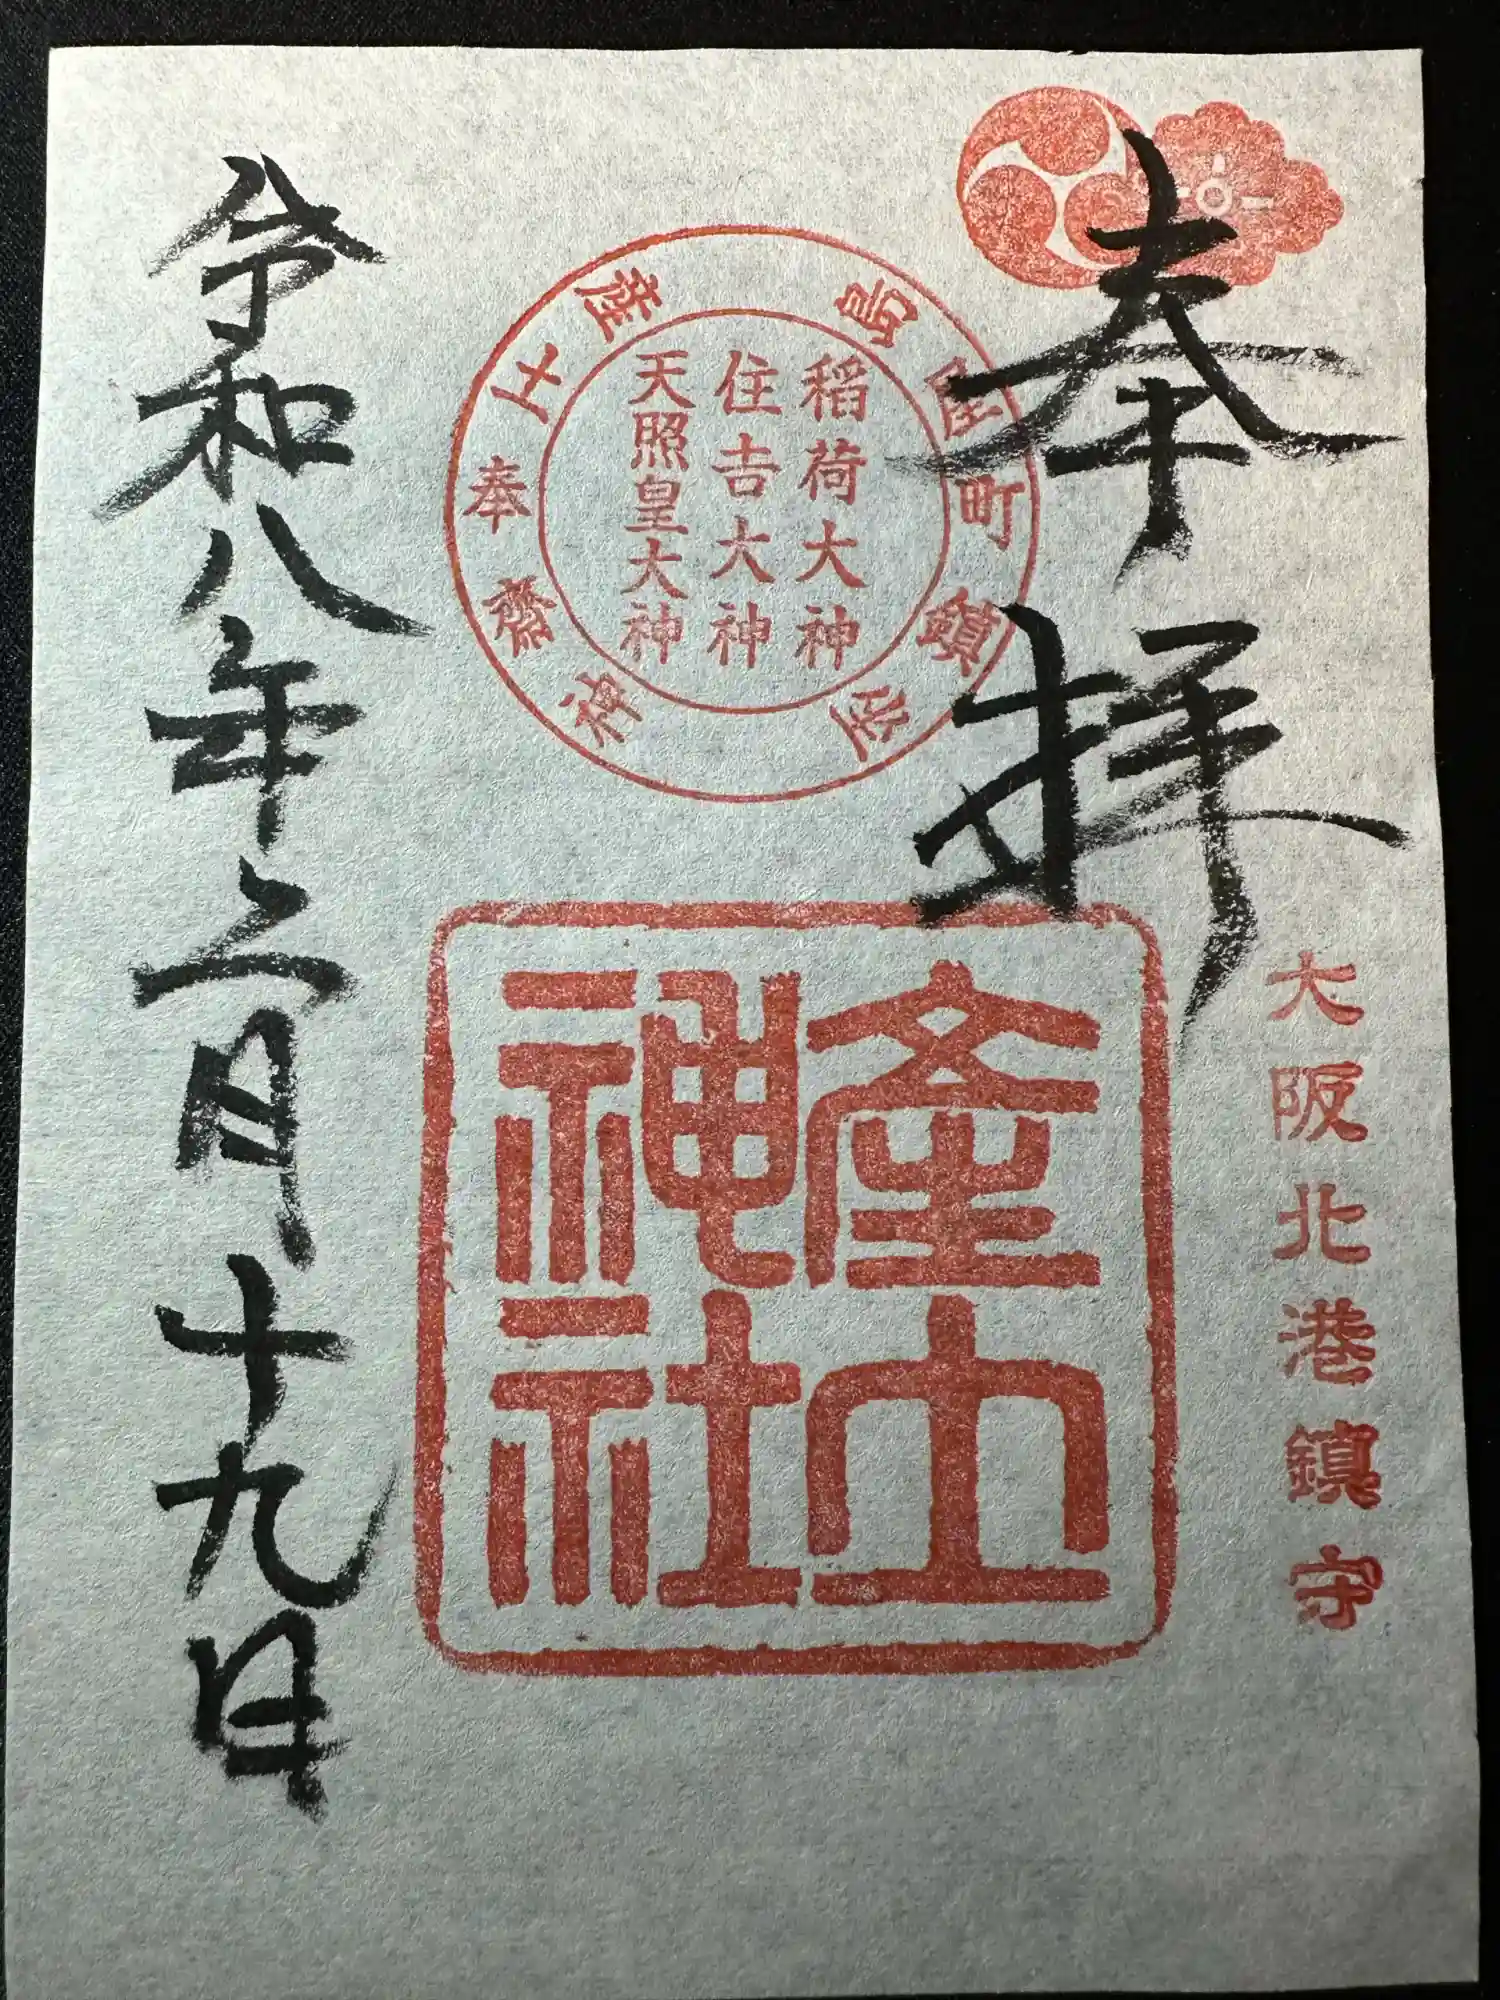 奉拝
大阪北港鎮守
島屋町鎮座
産土神社
奉斎神
稲荷大神
住吉大神
天照皇大神
産土神社
令和八年二月十九日